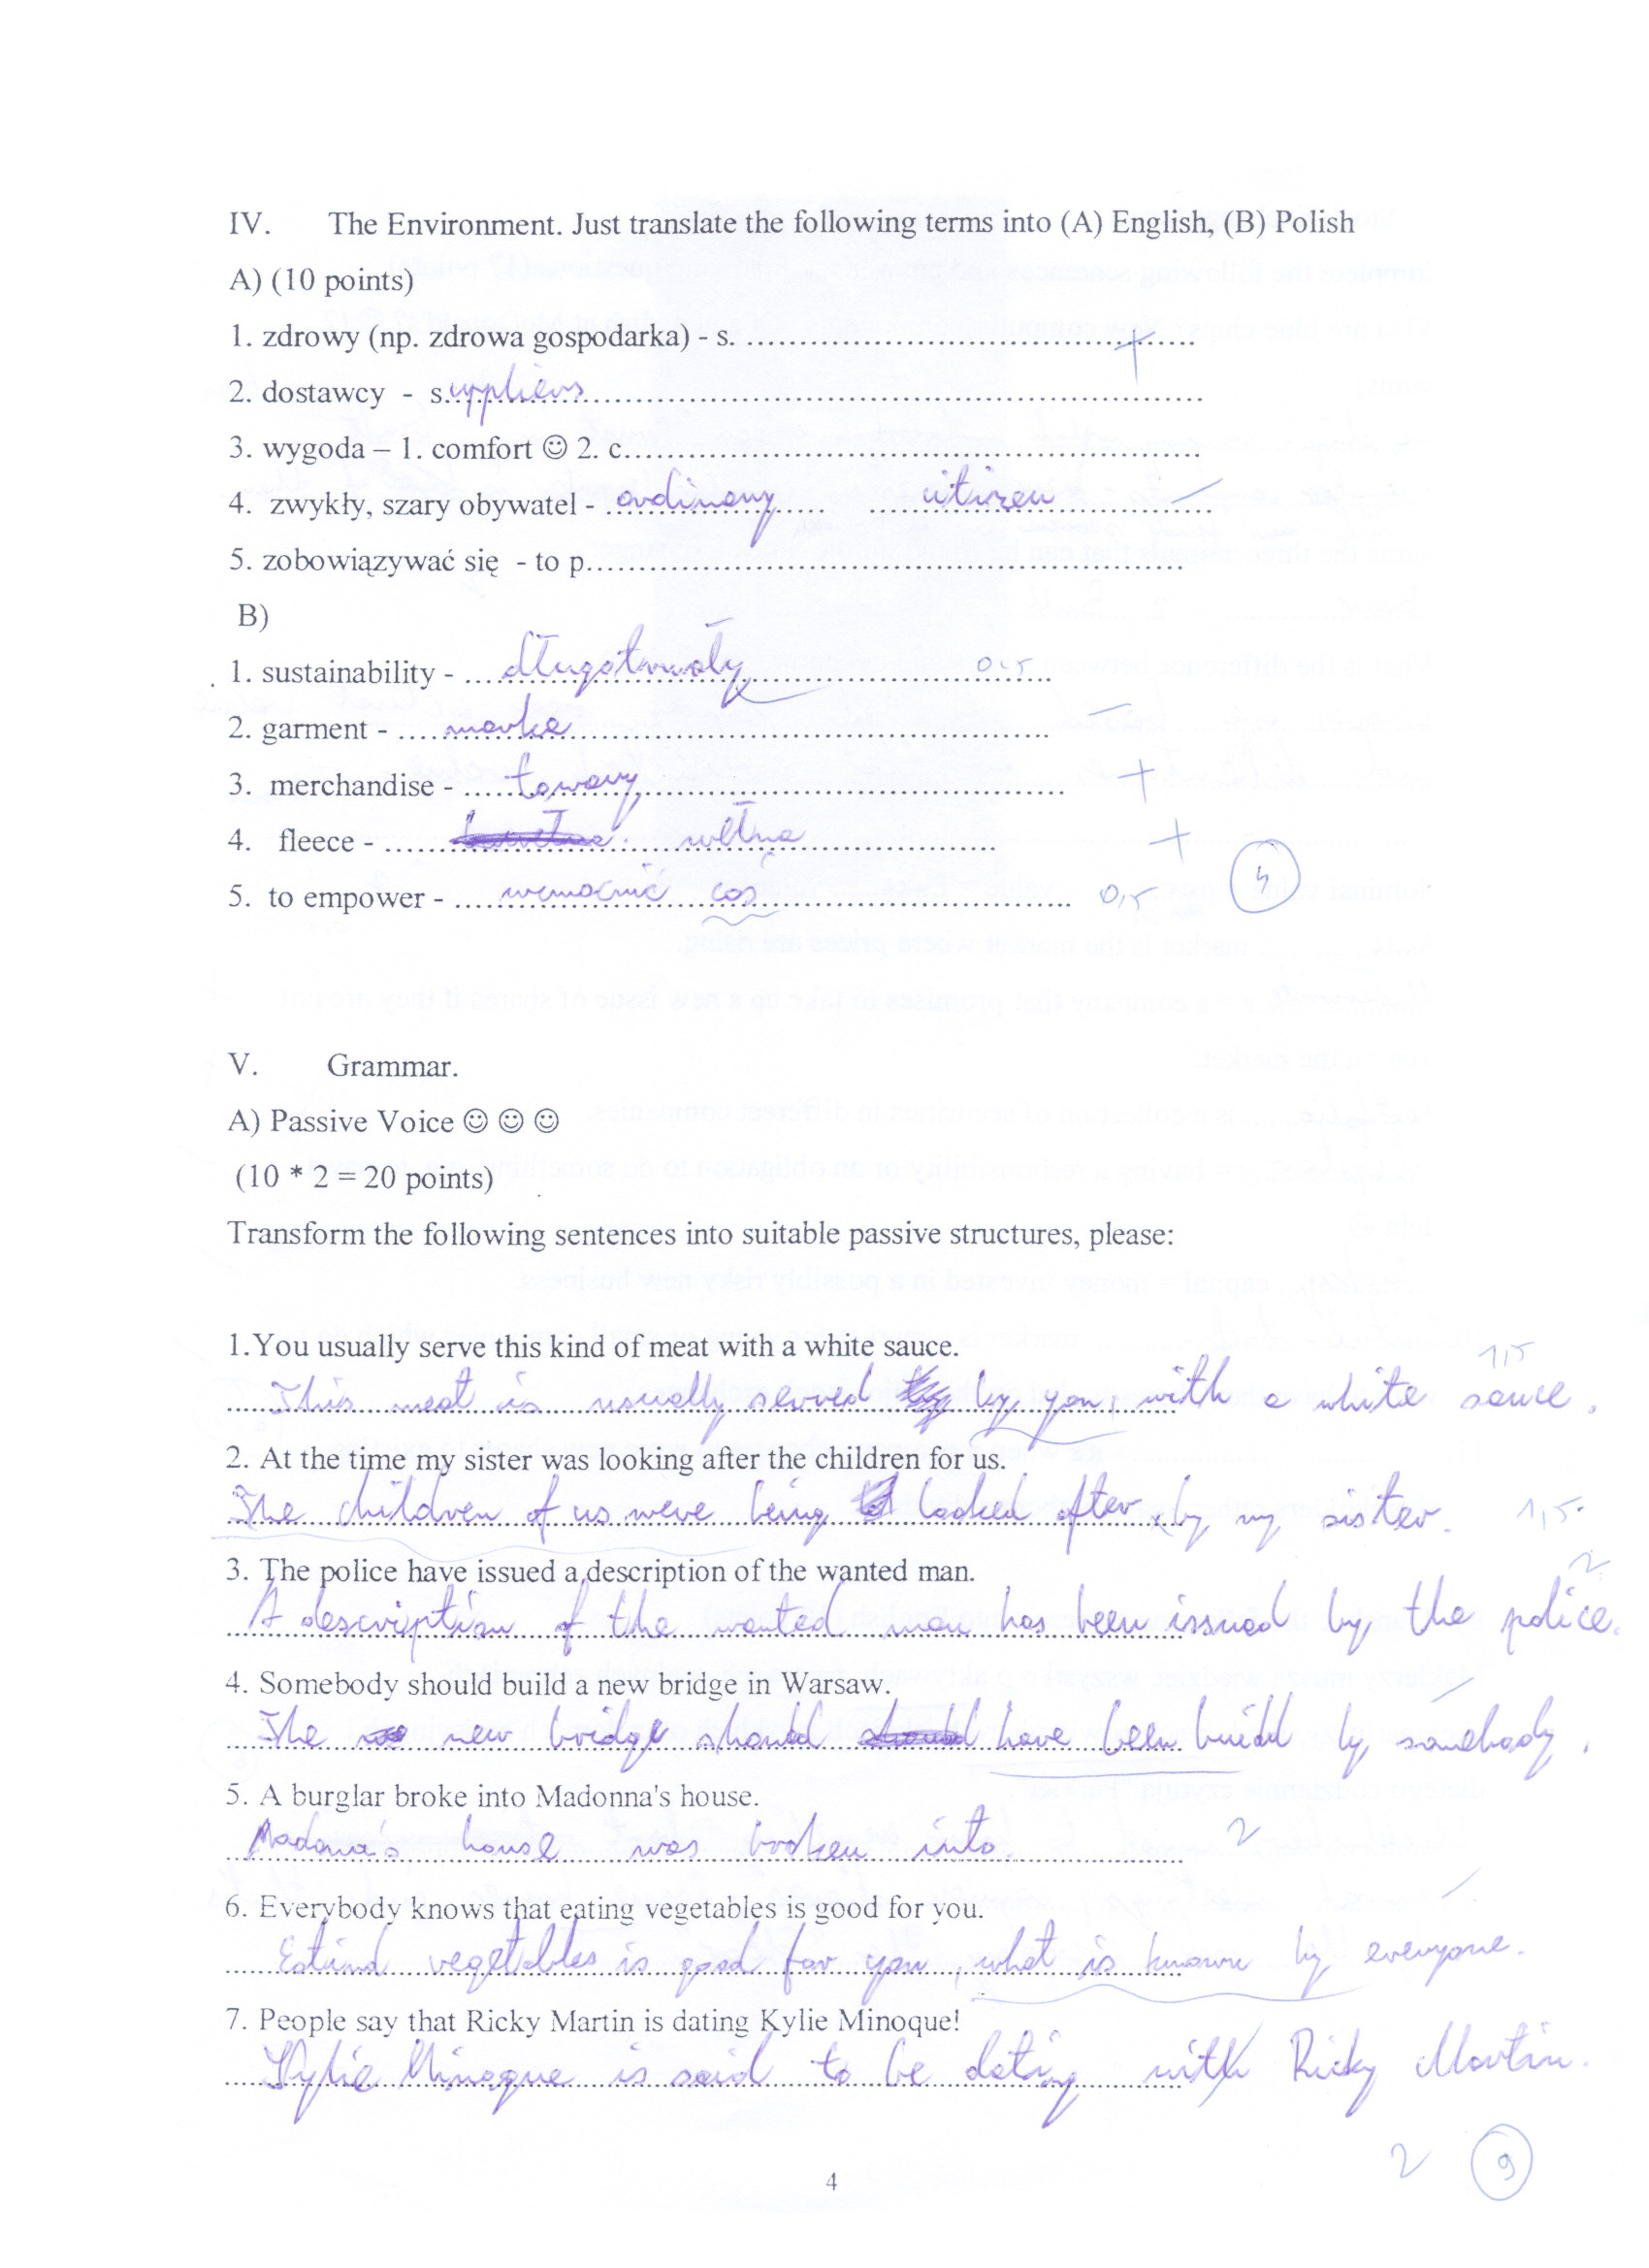 IV. The Environment. Just translate the following terms into (A) English, (B) Polish
A) (10 points)
1. zdrowy (np. zdrowa gospodarka) - s. ........................................ +
2. dostawcy - s.uppliers........................................
3. wygoda – 1. comfort ☺ 2. c........................................
4. zwykły, szary obywatel - ordinary citizen –
5. zobowiązywać się - to p........................................
B)
1. sustainability - długotrwały 0,5
2. garment - marka –
3. merchandise - towary +
4. fleece - wełna +
5. to empower - wzmocnić coś 0,5 4
V. Grammar.
A) Passive Voice ☺ ☺ ☺
(10 * 2 = 20 points)
Transform the following sentences into suitable passive structures, please:
1.You usually serve this kind of meat with a white sauce. 1,5
This meat is usually served by you, with a white sauce.
2. At the time my sister was looking after the children for us.
The children of us were being looked after by my sister. 1,5
3. The police have issued a description of the wanted man. 2
A description of the wanted man has been issued by the police.
4. Somebody should build a new bridge in Warsaw. –
The new bridge should have been build by somebody.
5. A burglar broke into Madonna's house.
Madona's house was broken into. 2
6. Everybody knows that eating vegetables is good for you. –
vegetables is good for you, what is known by everyone.
7. People say that Ricky Martin is dating Kylie Minoque!
Kylie Minoque is said to be dating with Ricky Martin.
2 9
4